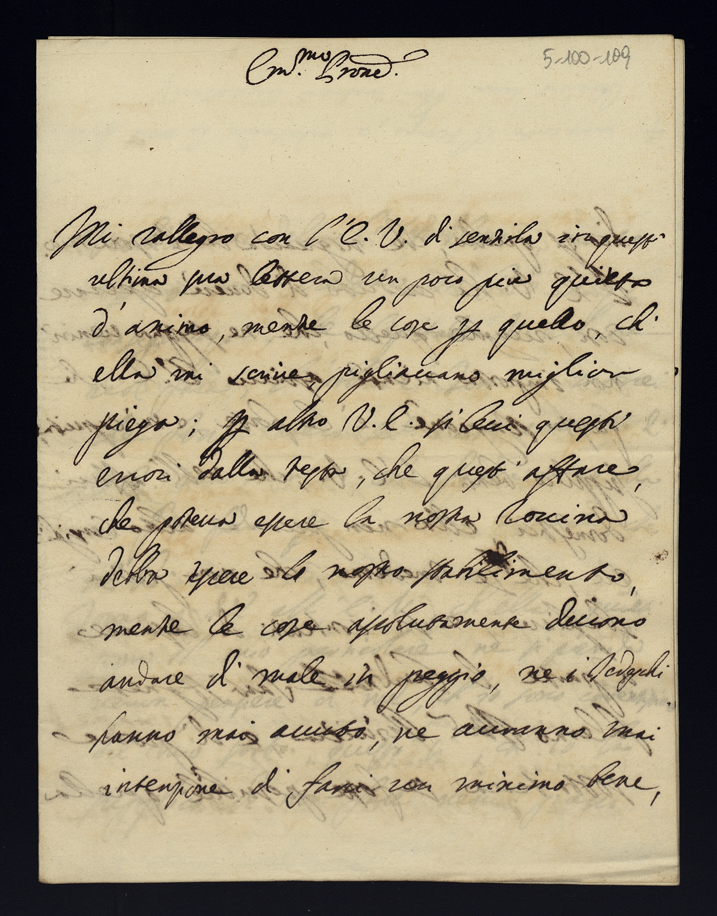 5-100-109
Em.mo Prone.
Mi rallegro con l'E. V. di sentirla in quest'
ultima sua lettera un poco più quieta
d'animo, mentre le cose p quello, ch'
ella mi scrive pigliavano miglior
piega; p altro V. E. si levi questi
errori dalla testa, che quest'affare,
che poteva essere la nostra rovina
debba essere lo nostro stabilimento,
mentre le cose assolutamente devono
andare di male in peggio, ne i Tedeschi
hanno mai avuto, ne avranno mai
intenzione di farci un minimo bene,